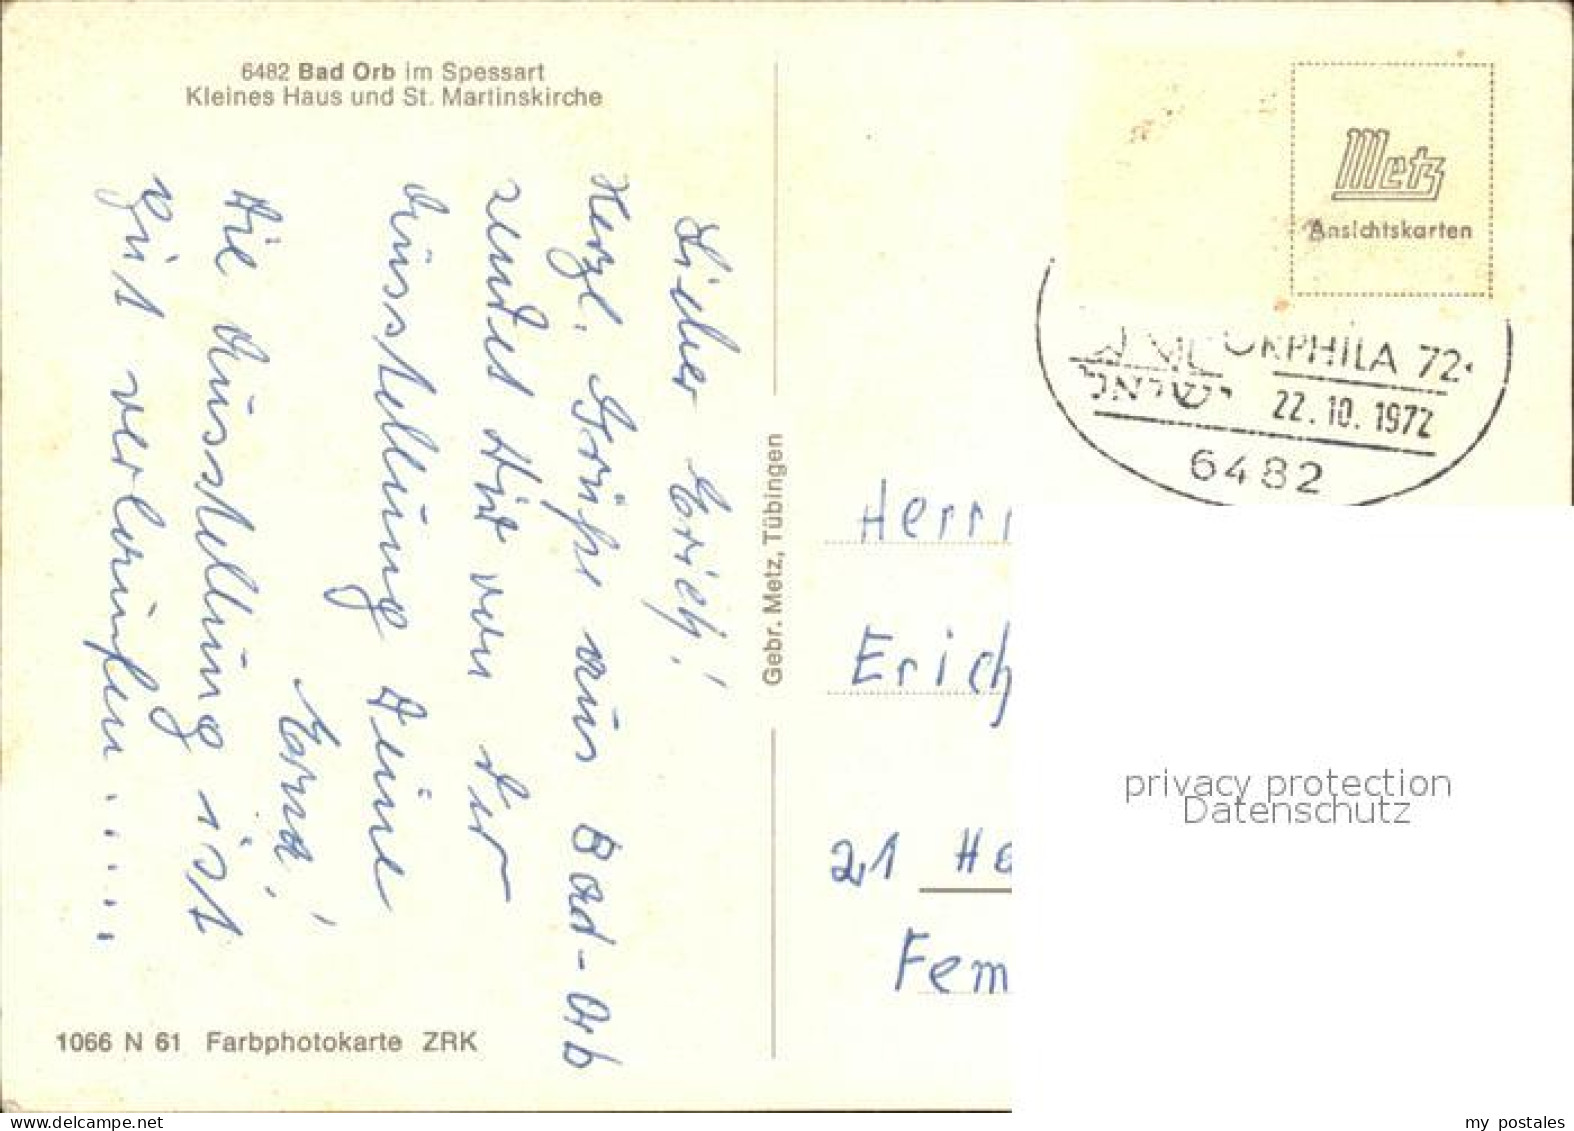 6482 Bad Orb im Spessart
Kleines Haus und St. Martinskirche
Lieber Erich!
Herzl. Grüße aus Bad-Orb
sendet Dir von der
Ausstellung Deine
Erna!
Die Ausstellung ist
gut verlaufen.....
1066 N 61 Farbphotokarte ZRK
Gebr. Metz, Tübingen
Metz
Ansichtskarten
ORPHILA 72
ישראל
22.10.1972
6482
Herrn
Erich
21 Ha
Fem
privacy protection
Datenschutz
delcampe.net
my postales